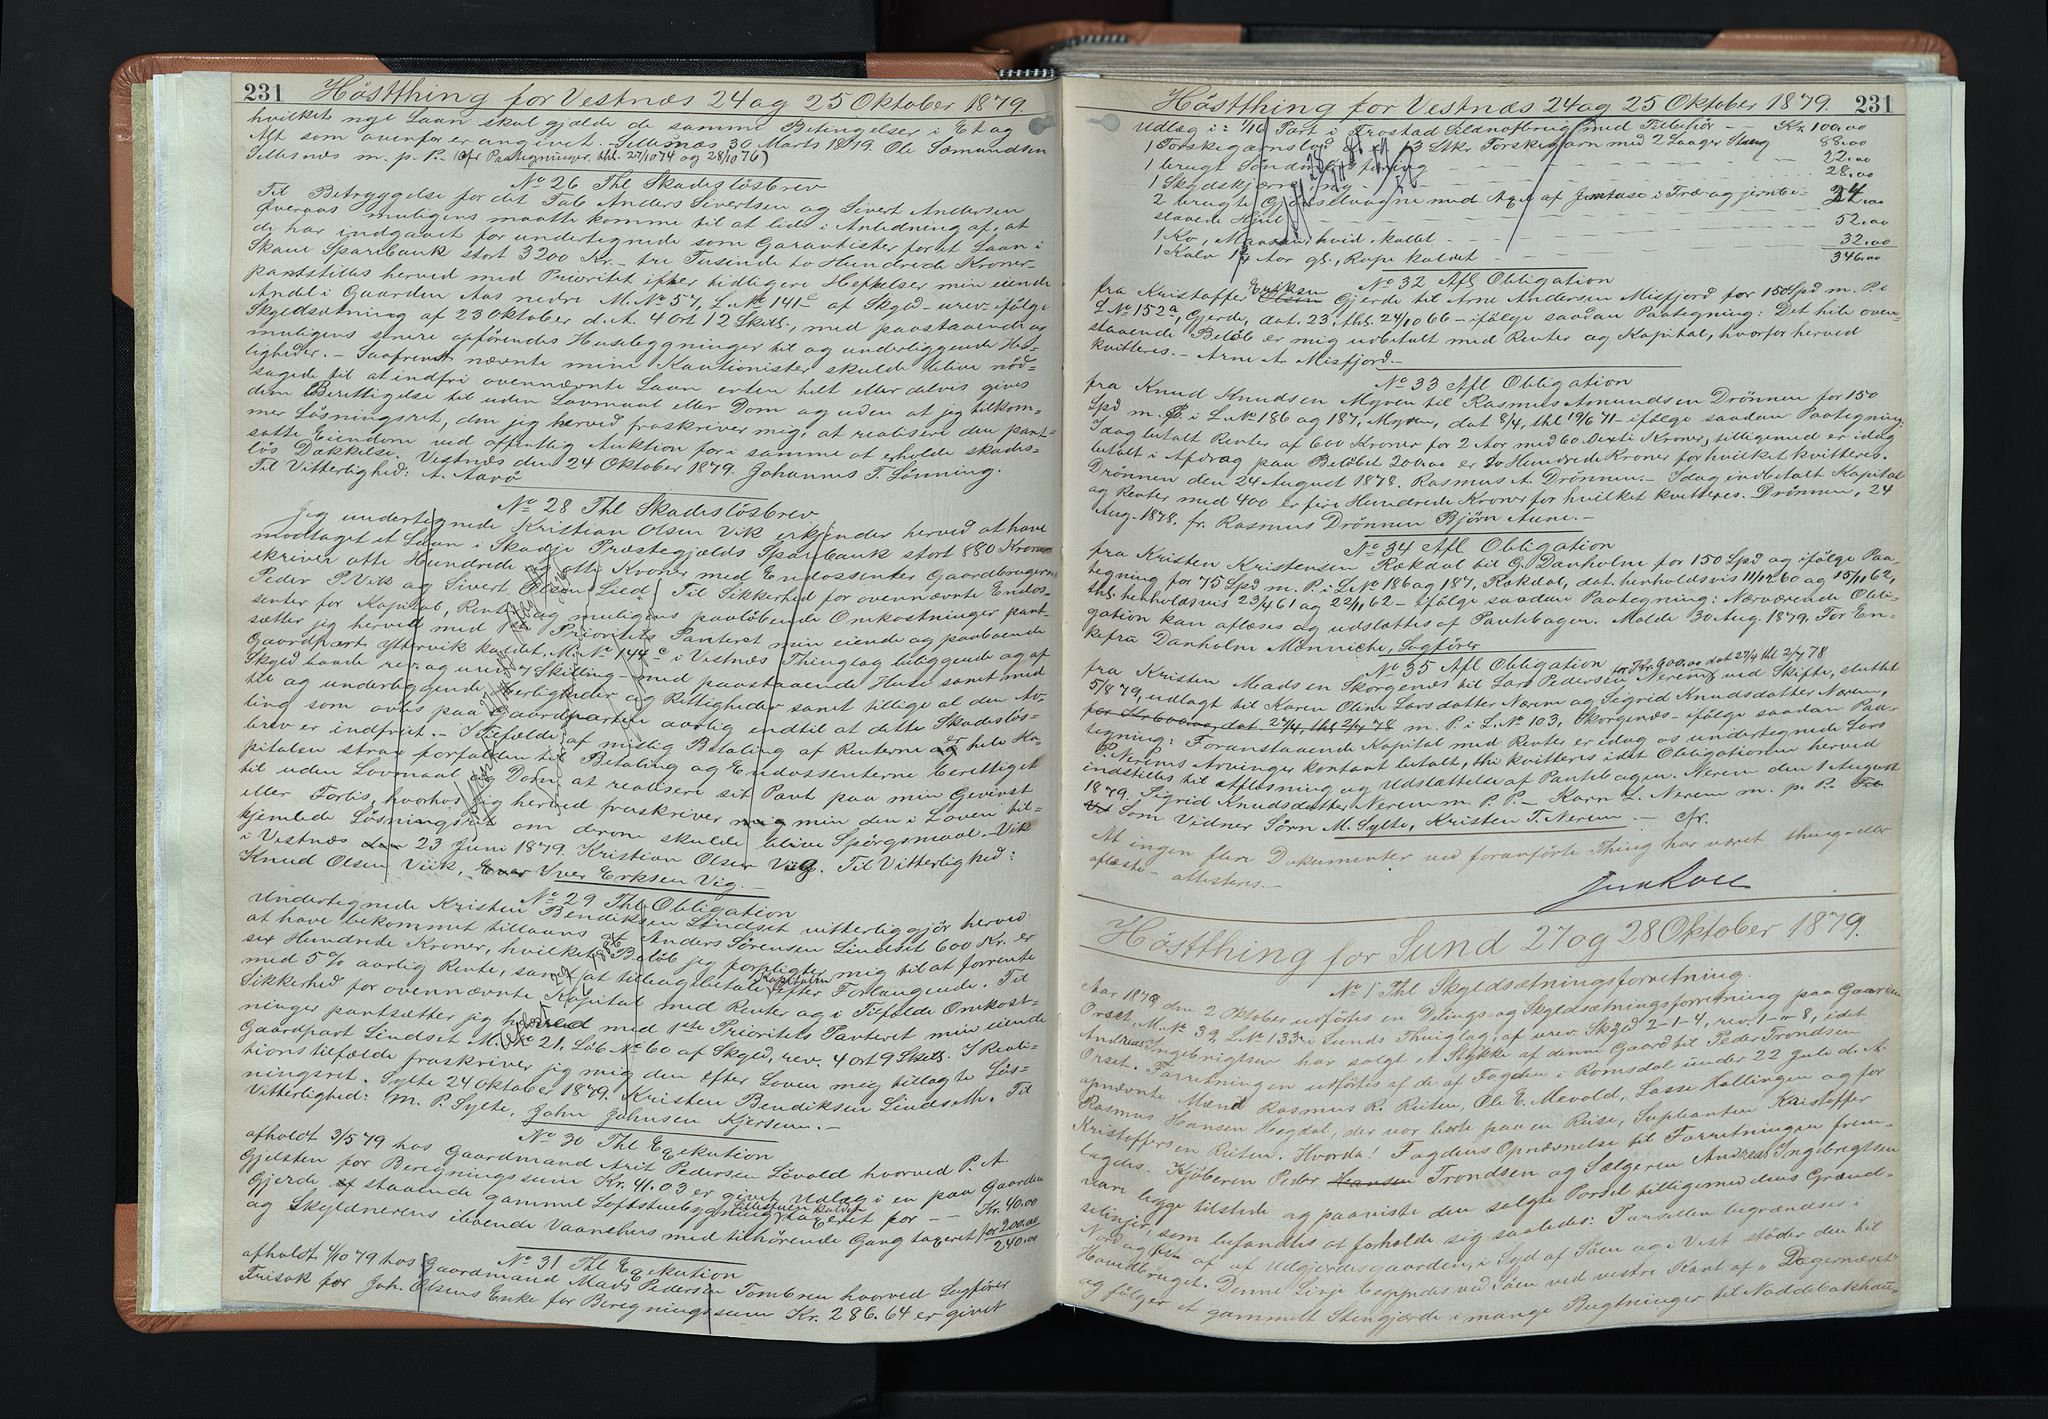 231 Høstthing for Vestnæs 24 og 25 Oktober 1879.
hvilket nye Laan skal gjælde de samme Betingelser i Et og
Alt som ovenfor er angivet. Sellesnæs 30 Marts 1879. Ole Sæmundsen
Sellesnæs m. p. P. (cfr Paategninger, thl. 27/10 74 og 28/10 76)
No 26 Thl Skadesløsbrev
Til Betryggelse for det Tab Anders Sivertsen og Sivert Andersen
Øveraas muligens maatte komme til at lide i Anledning af, at
de har indgaaet for undertegnede som Garantister for et Laan i
Skaue Sparebank stort 3200 Kr. - tre Tusende to Hundrede Kroner -
pantstilles herved med Prioritet efter tidligere Heftelser min eiende
Andel i Gaarden Aas nedre M. No 57, L. No 141c af Skyld - urev. ifølge
Skyldsætning af 23 Oktober d. A. 4 Ort 12 Skill., med paastaaende og
muligens senere opførendes Husebygninger til og underliggende Her-
ligheder. - Saafremt nævnte mine Kautionister skulde blive nød-
sagede til at indfri ovennævnte Laan enten helt eller delvis gives
dem Berettigelse til uden Lovmaal eller Dom og uden at jeg tilkom-
mer Løsningsret, den jeg herved fraskriver mig, at realisere den pant-
satte Eiendom ved offentlig Auktion for i samme at erholde skades-
løs Dækkelse. Vestnæs den 24 Oktober 1879. Johannes T. Lønning.
Til Vitterlighed: A. Aarø
No 28 Thl Skadesløsbrev
Jeg undertegnede Kristian Olsen Vik erkjender herved at have
modtaget et Laan i Skodje Præstegjælds Sparebank stort 880 Kroner
skriver otte Hundrede og otti Kroner med Endossenter Gaardbrugerne
Peder P. Vik og Sivert Olsen Lied. Til Sikkerhed for ovennævnte Endos-
senter for Kapital, Renter og muligens paaløbende Omkostninger pant-
sætter jeg herved med 1ste Prioritets Panteret min eiende og paaboende
Gaardpart Yttervik kaldet, M. No 144c i Vestnæs Thinglag beliggende og af
Skyld baade rev. og urev. 7 Skilling - med paastaaende Huse samt med
til og underliggende Herligheder og Rettigheder samt tillige al den Av-
ling som avles paa Gaardparten aarlig indtil at dette Skadesløs-
brev er indfriet. - I Tilfælde af mislig Betaling af Renterne er hele Ka-
pitalen strax forfalden til Betaling og Endossenterne berettiget
til uden Lovmaal og Dom at realisere sit Pant paa min Gevinst
eller Forlis, hvorhos jeg herved fraskriver mig min den i Loven til-
kjendte Løsningsret om derom skulde blive Spørgsmaal. Vik
i Vestnæs den 23 Juni 1879. Kristian Olsen Vig. Til Vitterlighed:
Knud Olsen Viik, Iver Erksen Vig.
No 29 Thl Obligation
Undertegnede Kristen Bendiksen Lindset vitterliggjør herved
at have bekommet tillaans af Anders Sørensen Lindset 600 Kr. er
sex Hundrede Kroner, hvilket Beløb jeg forpligter mig til at forrente
med 5% aarlig Rente, samt at tilbagebetale Kapitalen efter Forlangende. Til
Sikkerhed for ovennævnte Kapital med Renter og i Tilfælde Omkost-
ninger pantsætter jeg herved med 1ste Prioritets Panteret min eiende
Gaardpart Lindset M. No 21, Løb No 60 af Skyld, rev. 4 Ort 9 Skill. I Revi-
tionstilfælde fraskriver jeg mig den efter Loven mig tillagte Løs-
ningsret. Sylte 24 Oktober 1879. Kristen Bendiksen Lindseth. Til
Vitterlighed: M. P. Sylte, John Johnsen Kjersem. -
No 30 Thl Exekution
afholdt 3/5 79 hos Gaardmand Arit Pedersen Løvold hvorved P. A.
Gjelsten for Beregningssum Kr. 41.03 er givet Udlæg i en paa Gaarden
Gjerde, staaende gammel Loftstuebygning taxeret for - - Kr. 40.00
og Skyldnerens iboende Vaanehus med tilhørende Gang taxeret for 200.00
240.00
No 31 Thl Exekution
afholdt 4/10 79 hos Gaardmand Mads Pedersen Tombren hvorved Sagfører
Frisak for Joh. Olsens Enke for Beregningssum Kr. 286.64 er givet
Høstthing for Vestnæs 24 og 25 Oktober 1879. 231
Udlæg i: 1/16 Part i Frostad Sildnotbrug med Tilbehør - Kr. 100.00
1 Torskegarnslod 13 Stkr Torskegarn med 2 Laager Stang 88.00
1 brugt 22.00
1 Skydskjærre 28.00
2 brugte Gjødselvogne med Axel af Jern i Træ og jernbe-
slaaede Hjul 24.00
1 Ko, hvid, kaldet 52.00
1 Kalv 1 1/2 Aar gl., kaldet 32.00
346.00
No 32 Afl Obligation
fra Kristoffer Eriksen Gjerde til Arne Andersen Misfjord for 150 Spd m. P. i
L No 152a, Gjerde, dat. 23, thl. 24/10 66 - ifølge saadan Paategning: Det hele oven-
staaende Beløb er mig udbetalt med Renter og Kapital, hvorfor herved
kvitteres. - Arne A. Misfjord. -
No 33 Afl Obligation
fra Knud Knudsen Myren til Rasmus Asmundsen Drønnen for 150
Spd m. P. i L. No 186 og 187, Myren, dat 8/4, thl 19/6 71 - ifølge saadan Paategning:
Idag betalt Renter af 600 Kroner for 2 Aar med 60 Sexti Kroner, tilligemed er idag
betalt i Afdrag paa Beløbet 200.00 er to Hundrede Kroner for hvilket kvitteres.
Drønnen den 24 August 1878. Rasmus A. Drønnen. - Idag indbetalt Kapital
og Renter med 400 er fire Hundrede Kroner for hvilket kvitteres. Drønnen, 24
Aug. 1878. fr. Rasmus Drønnen Bjørn Aune. -
No 34 Afl Obligation
fra Kristen Kristensen Rækdal til G. Danholm for 150 Spd og ifølge Paa-
tegning for 75 Spd m. P. i L. No 186 og 187, Rækdal, dat. henholdsvis 11/12 60 og 15/11 62,
thl. henholdsvis 23/4 61 og 22/1 62 - ifølge saadan Paategning: Nærværende Obli-
gation kan aflæses og udslettes af Pantebogen. Molde 30 Aug. 1879. For En-
kefru Danholm Monniche, Sagfører
No 35 Afl Obligation for Kr. 900.00 dat 27/4 thl 2/7 78
fra Kristen Madsen Skorgenæs til Lars Pedersen Nerem, ved Skifte, sluttet
5/8 79, udlagt til Karen Oline Larsdatter Nerem og Sigrid Knudsdatter Nerem,
for Kr 600.00, dat. 27/4, thl 2/7 78 m. P. i L. No 103, Skorgenæs - ifølge saadan Paa-
tegning: Foranstaaende Kapital med Renter er idag os undertegnede Lars
P. Nerems Arvinger kontant betalt, thi kvitteres idet Obligationen herved
indstilles til Aflysning og Udslettelse af Pantebogen. Nerem den 1 August
1879. Sigrid Knudsdatter Nerem m. P. P. - Karn L. Nerem m. p. P. Til
Som Vidner Sørn M. Sylte, Kristen T. Nerem. - cfr.
At ingen flere Dokumenter ved foranførte Thing har været thing- eller
aflæste - attesteres. -
Høstthing for Sund 27 og 28 Oktober 1879.
No 1 Thl Skyldsætningsforretning.
Aar 1879 den 2 Oktober udførtes en Delings- og Skyldsætningsforretning paa Gaarden
Orset, M. No 39, L. No 133 i Sunds Thinglag, af urev. Skyld 2-1-4, rev. 1-0-8, idet
Andreas Ingebrigtsen har solgt et Stykke af denne Gaard til Peder Trondsen
Orset. Forretningen udførtes af de af Fogden i Romsdal under 22 Juli d. A.
opnævnte Mænd Rasmus R. Reiten, Ole E. Mevold, Lasse Hallingen og for
Rasmus Hansen Hegdal, der var borte paa en Reise, Suplianten Kristoffer
Kristoffersen Reiten. Hvorda! Fogdens Opnævnelse til Forretningen frem-
lagdes. Kjøberen Peder Hansen Trondsen og Sælgeren Andreas Ingebrigtsen
vare begge tilstede og paaviste den solgte Parsel tilligemed dens Grænd-
selinjer, som befandtes at forholde sig saaledes: Parsellen begrændses i
Nord og Øst af Udgjærdesgaarden, i Syd af Søen og i Vest støder den til
Hovedbruget. Denne Linje begyndes ved Søen ved vestre Kant af „Dagernæset"
og følger et gammelt Stengjærde i mange Bugtninger til Noddebakhau-